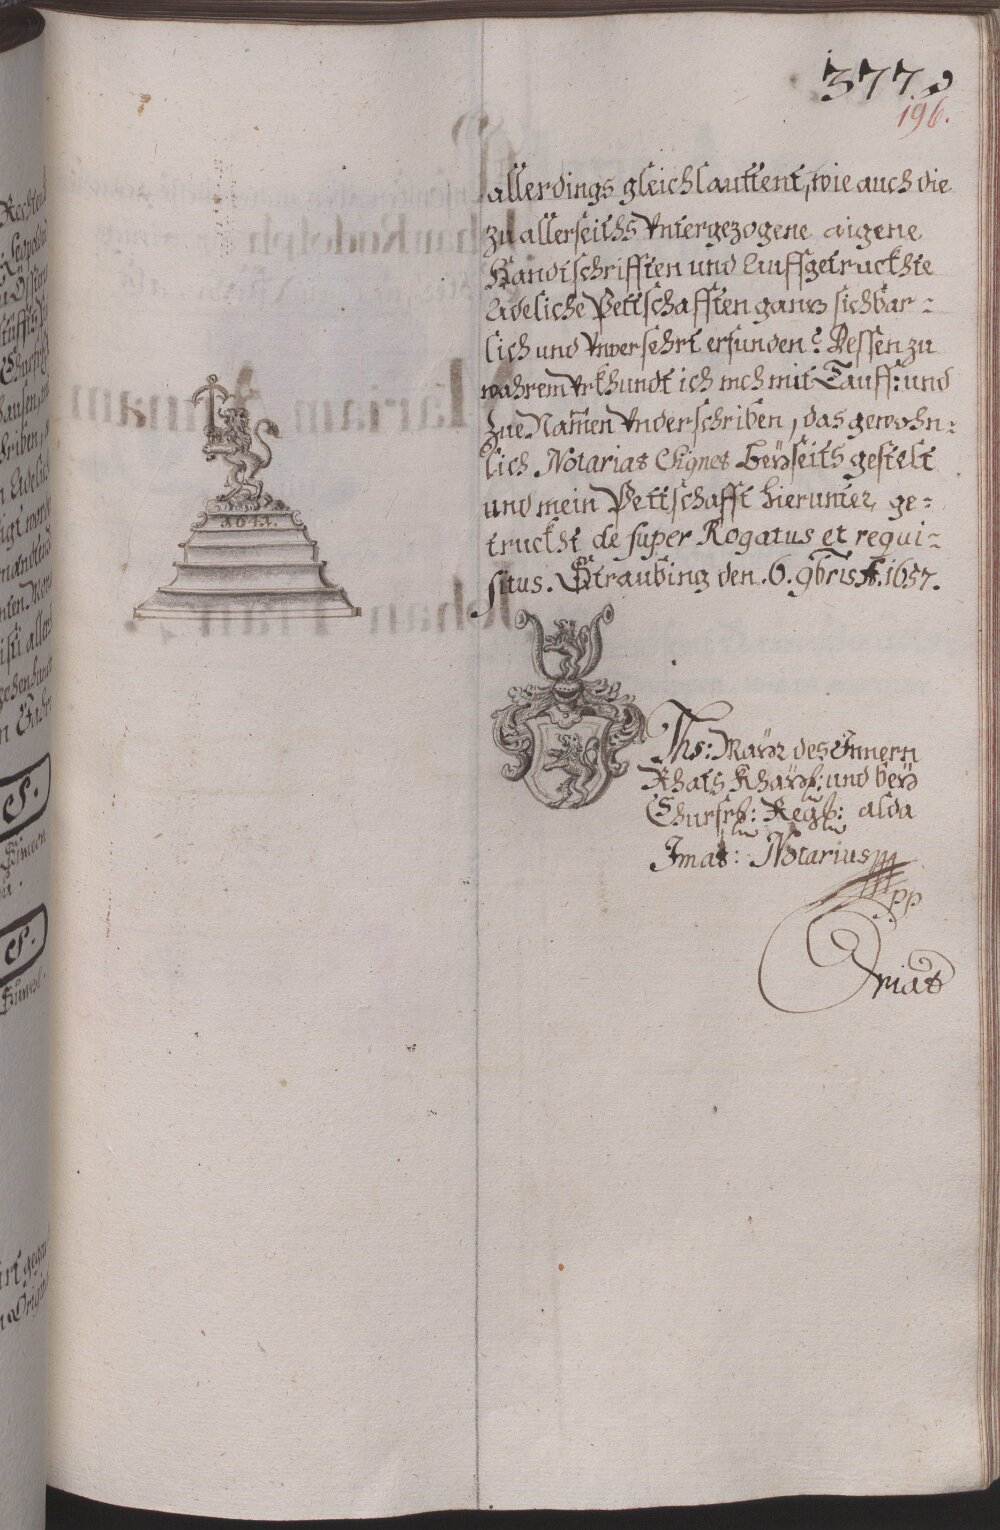 377
196.
allerdings gleichlauttent, wie auch die
zu allerseiths Untergezogene aigene
Handtschrifften und Auffgetruckhte
Adeliche Pettschafften gantz sichbar-
lich und Unversehrt erfunden: Dessen zu
wahrem Urkhundt ich mch mit Tauff: und
Zue Namen Underschriben, das gewohn:
lich Notariat Signet beyseits gestelt
und mein Pettschafft hierunter ge:
truckht de super Rogatus et requi-
situs. Straubing den .6. 9bris A. 1657.
1641.
Ths: Mayr des Innern
Rhats und bey
Churfrl: Regl: alda
Imat: Notarius
pp